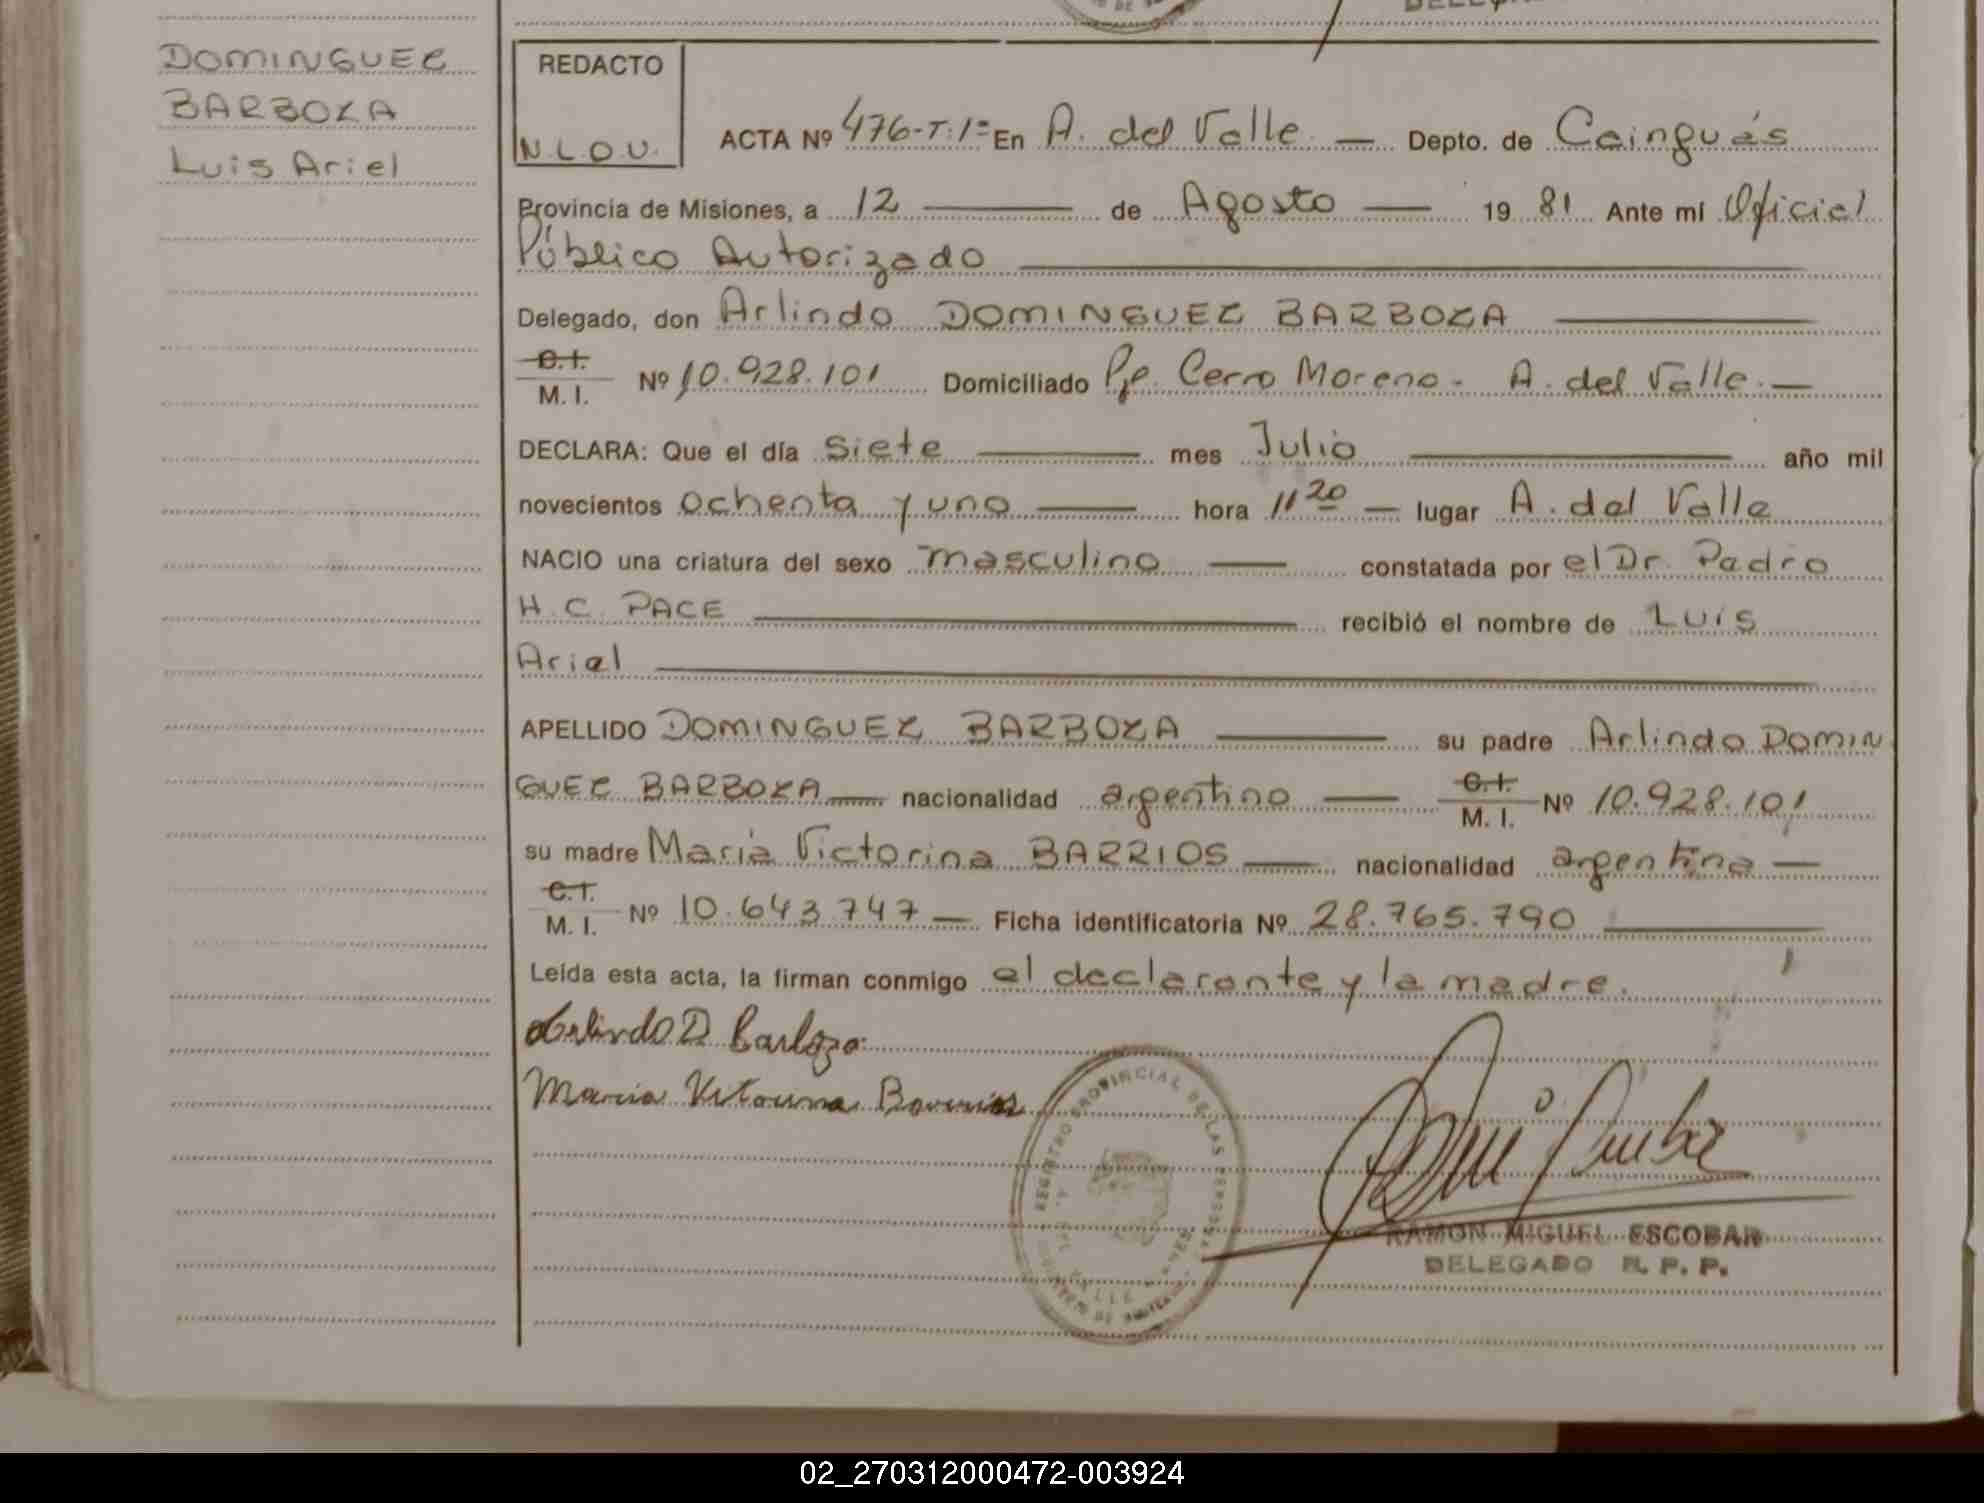 DOMINGUEZ
BARBOZA
Luis Ariel
REDACTO
N.L.O.U.
ACTA Nº 476-T:1º En A. del Valle — Depto. de Cainguás
Provincia de Misiones, a 12 — de Agosto — 19 81 Ante mí Oficial
Público Autorizado
Delegado, don Arlindo DOMINGUEZ BARBOZA
C.I.
M. I. Nº 10.928.101 Domiciliado Pje. Cerro Moreno - A. del Valle.—
DECLARA: Que el día siete — mes Julio — año mil
novecientos ochenta y uno — hora 11 20 — lugar A. del Valle
NACIO una criatura del sexo masculino — constatada por el Dr. Pedro
H. C. PACE — recibió el nombre de Luis
Ariel —
APELLIDO DOMINGUEZ BARBOZA — su padre Arlindo DOMIN
GUEZ BARBOZA — nacionalidad argentino — C.I.
M. I. Nº 10.928.101
su madre María Victorina BARRIOS — nacionalidad argentina —
C.I.
M. I. Nº 10.643.747 — Ficha identificatoria Nº 28.765.790 —
Leída esta acta, la firman conmigo el declarante y la madre.
Arlindo D Barboza
Maria Vitorina Barrios
REGISTRO PROVINCIAL DE LAS PERSONAS
RAMON MIGUEL ESCOBAR
DELEGADO R. P. P.
02_270312000472-003924